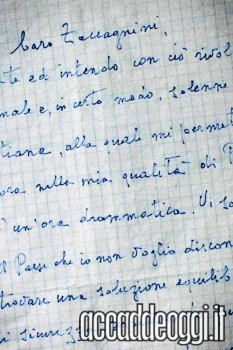 Caro Zaccagnini,
te ed intendo con ciò rivol
nale e, in certo modo, solenne
tiana, alla quale mi permet
ora nella mia qualità di P
un'ora drammatica. Vi so
l Paese che io non voglio discon
trovare una soluzione equilib
di sicurezz
accaddeoggi.it